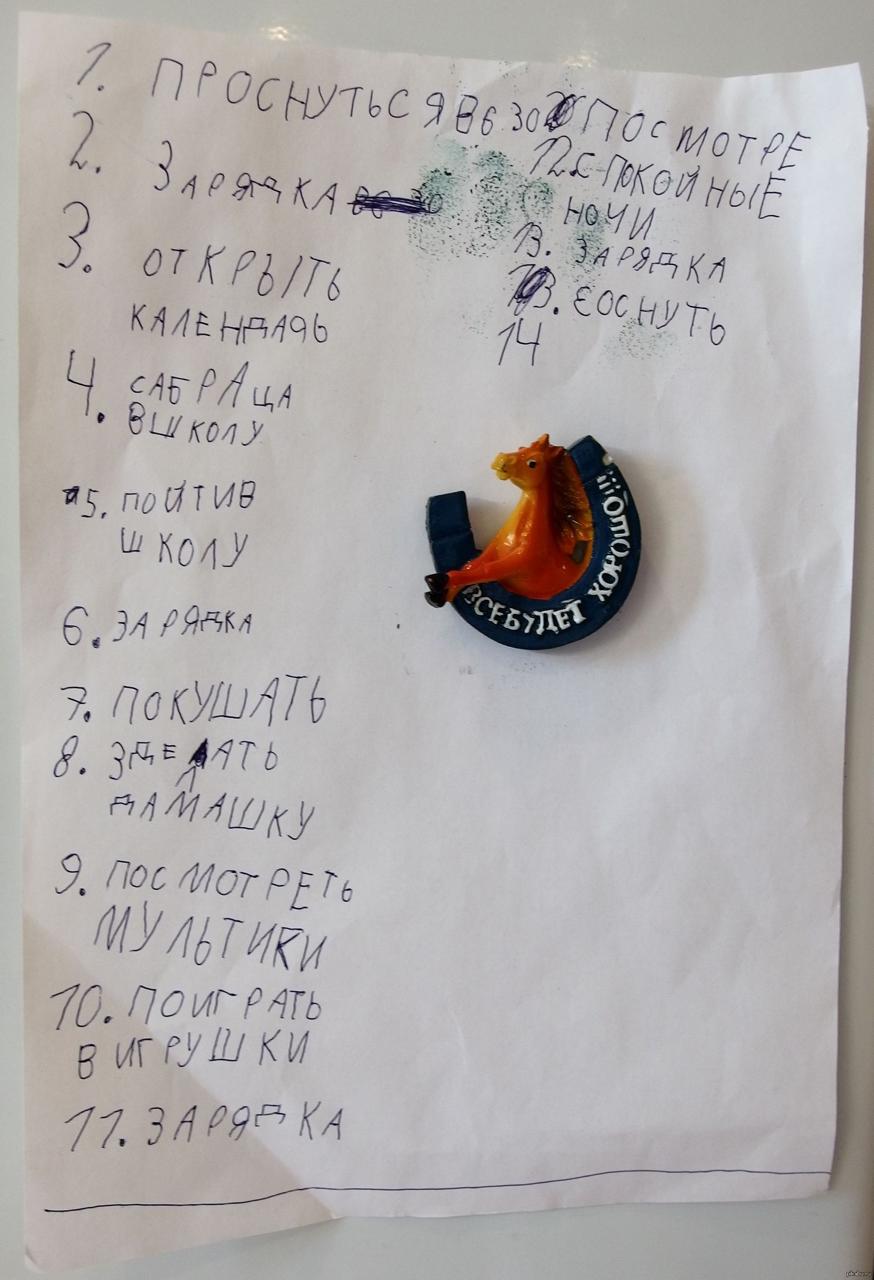 1. ПРОСНУТЬСЯ В 6 30
2. ЗАРЯДКА
3. ОТКРЫТЬ
КАЛЕНДАЯЬ
4. САБРАЦА
ВШКОЛУ
5. ПОЙТИВ
ШКОЛУ
6. ЗАРЯДКА
7. ПОКУШАТЬ
8. ЗДЕЛАТЬ
ДАМАШКУ
9. ПОСМОТРЕТЬ
МУЛЬТИКИ
10. ПОИГРАТЬ
В ИГРУШКИ
11. ЗАРЯДКА
ПОСМОТРЕ
12. СПОКОЙНЫЕ
НОЧИ
13. ЗАРЯДКА
13. ЕОСНУТЬ
14
ВСЕ БУДЕТ ХОРОШО!!!